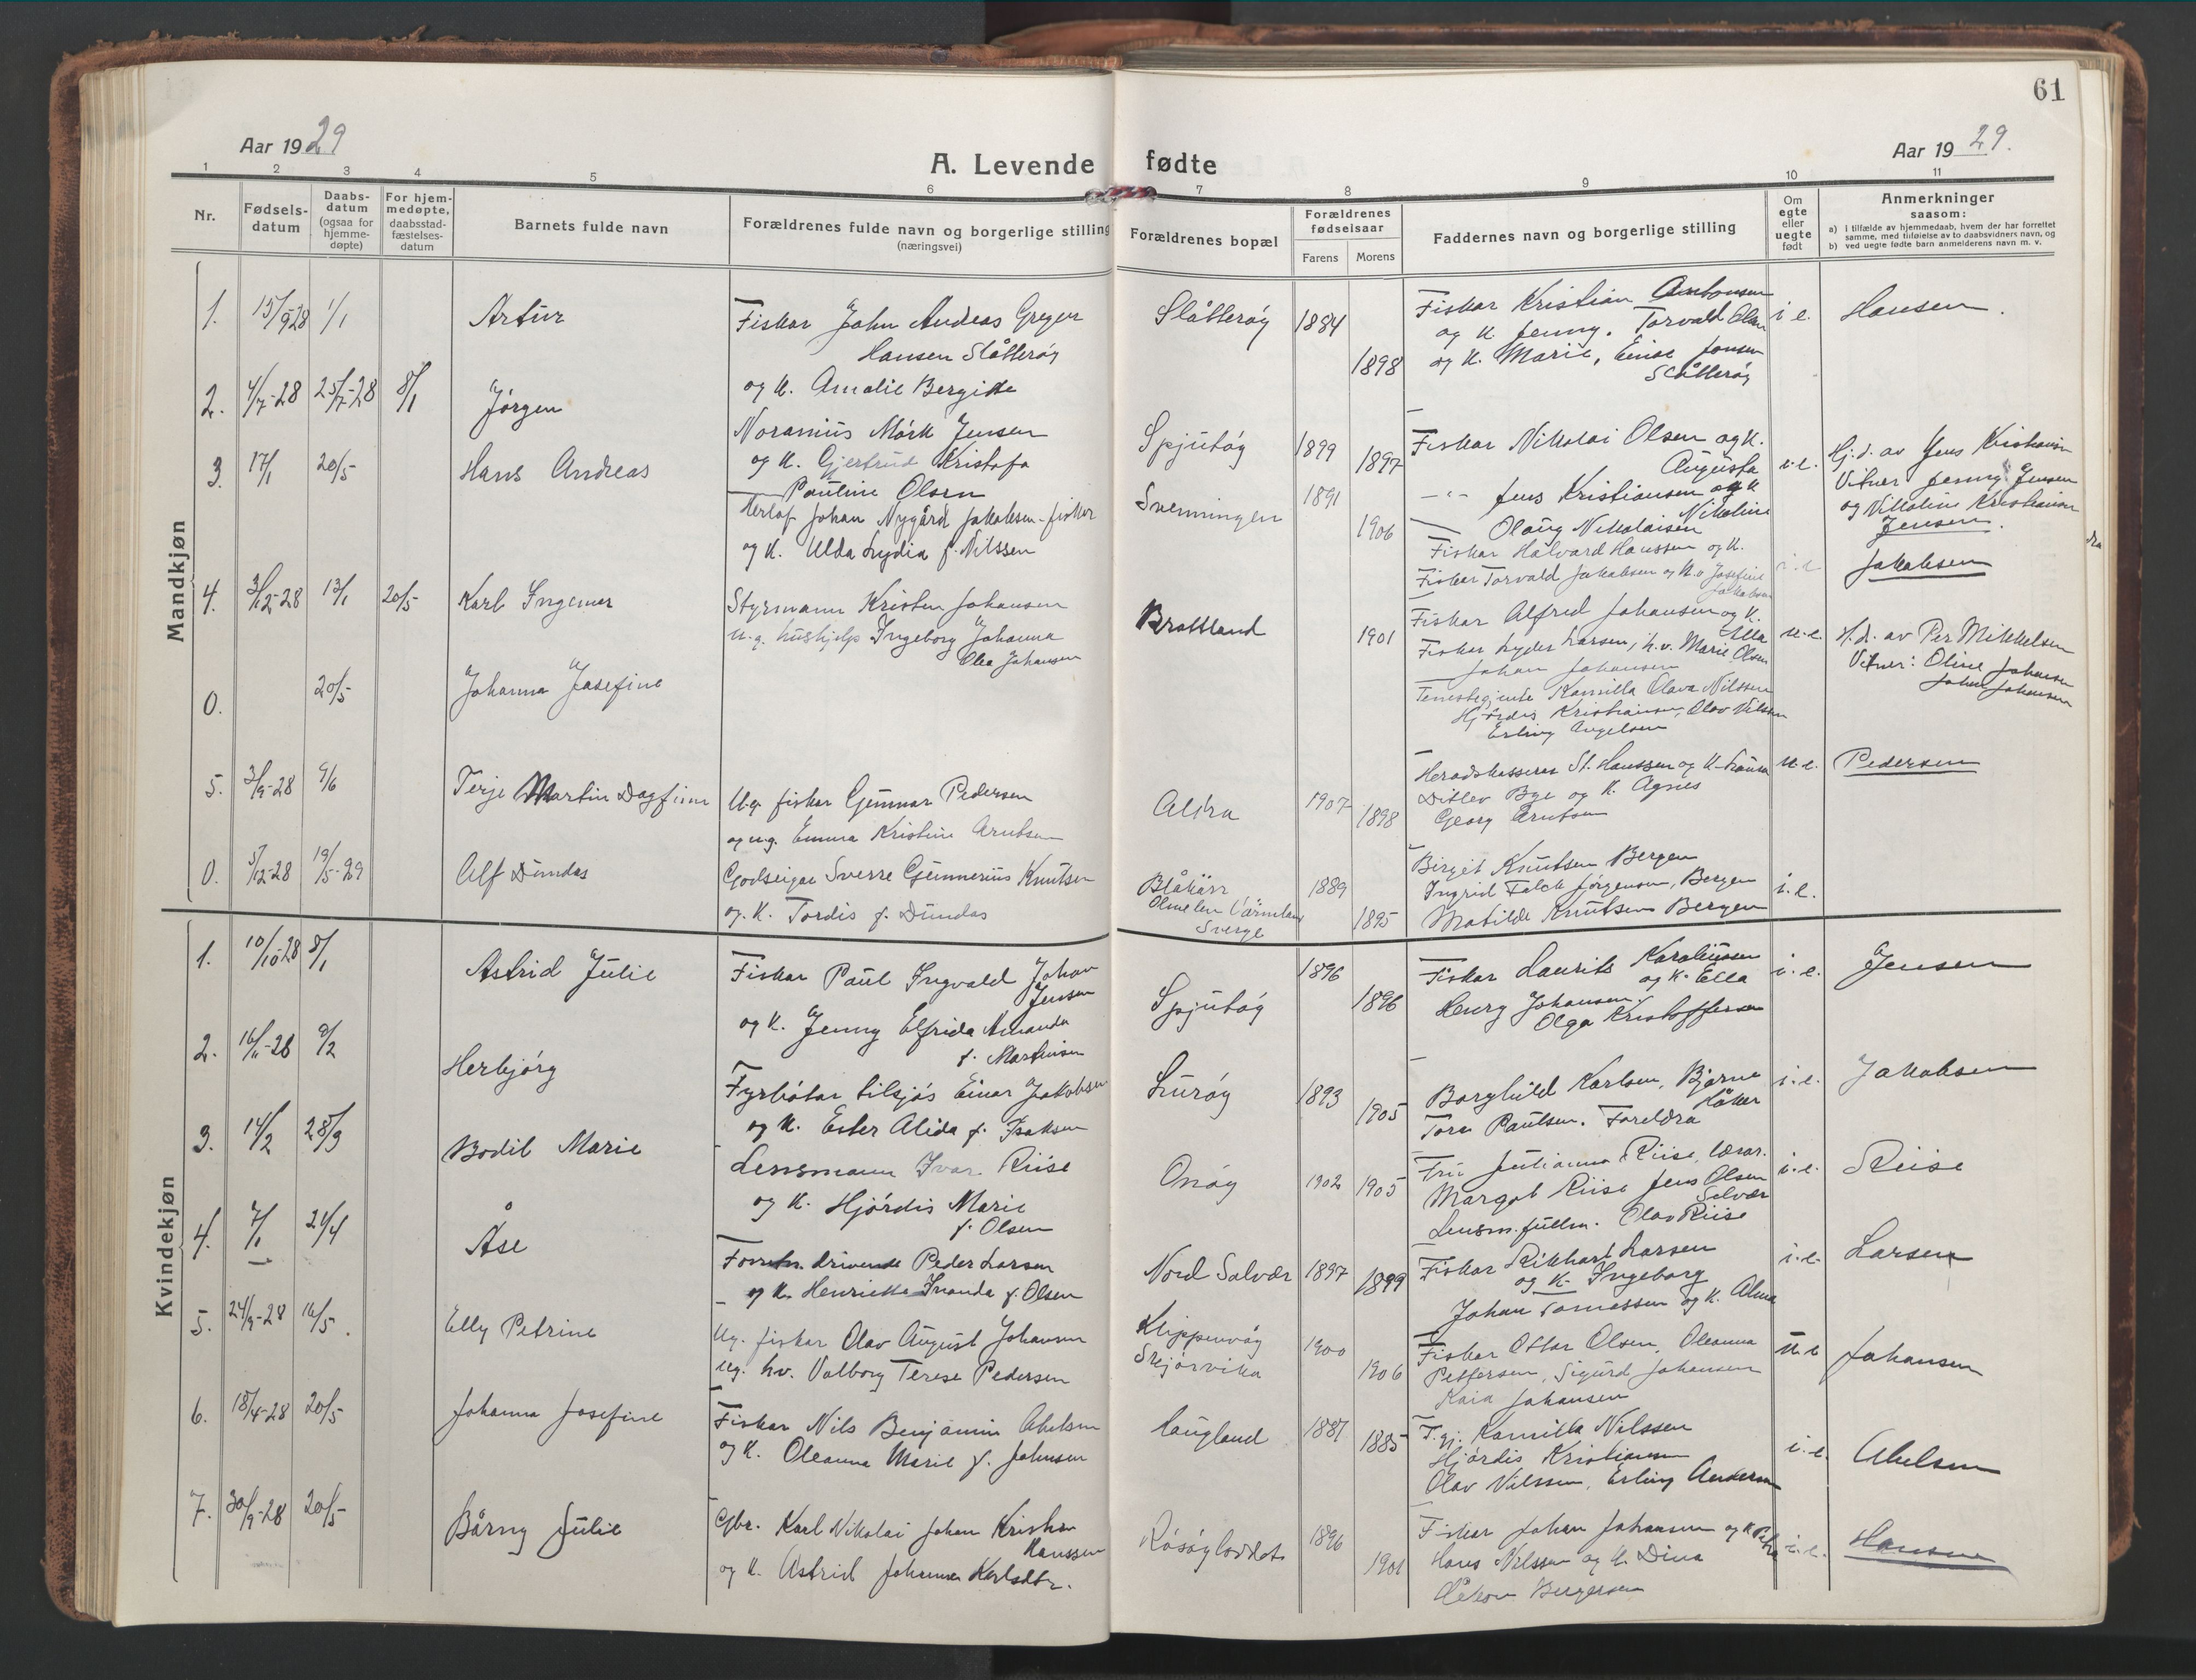 61
Aar 1929
A. Levende fødte
Aar 1929.
1 2 3 4 5 6 7 8 9 10 11
Nr.
Fødsels-
datum
Daabs-
datum
(ogsaa for
hjemme-
døpte)
For hjem-
medøpte,
daabsstad-
fæstelses-
datum
Barnets fulde navn
Forældrenes fulde navn og borgerlige stilling
(næringsvei)
Forældrenes bopæl
Forældrenes
fødselsaar
Farens Morens
Faddernes navn og borgerlige stilling
Om
egte
eller
uegte
født
Anmerkninger
saasom:
a) i tilfælde av hjemmedaab, hvem der har forrettet
samme, med tilføielse av to daabsvidners navn, og
b) ved uegte fødte barn anmelderens navn m. v.
Mandkjøn
1. 15/9-28 1/1 Artur
Fiskar John Andreas Greger
Hansen Slåtterøy
og k. Amalie Bergitte
Slåtterøy 1884 1898
Fiskar Kristian Antonsen
og k. Jenny. Torvald Olsen
og k. Marie, Einar Jonsen
Slåtterøy
i e. Hansen.
2. 4/7-28 25/7-28 8/1 Jörgen
Noranius Mörk Jensen
og k. Gjertrud Kristofa
Pauline Olsen
Spjutøy 1899 1897
Fiskar Nikolai Olsen og k.
Augusta
Jens Kristiansen og k
Nikoline
Olaug Nikolaisen
i.e. Hj.d. av Jens Kristiansen
Vitner Jenny Jensen
og Nikoline Kristiansen
Jensen.
3. 17/1 20/5 Hans Andreas
Herlof Johan Nygård Jakobsen - fiskar
og k. Ulda Lydia f. Nilssen
Svenningen 1891 1906
Fiskar Halvard Hanssen og k.
Fiskar Torvald Jakobsen og k. Josefine
Jakobsen
i.e Jakobsen
4. 3/12-28 13/1 20/5 Karl Ingemar
Styrmann Kristen Johansen
u.g. hushjelp Ingeborg Johanna
Olea Johansen
Brattland 1901
Fiskar Alfred Johansen og k.
Ella
Fiskar Lyder Larsen, h.v. Marie Olsen
Johan Johansen
u.e. H.d. av Per Mikkelsen
Vitner: Oline Johansen
Johan Johansen
0. 20/5 Johanna Josefine
Kamilla Olava Nilssen
Hjördis Kristiansen, Olav Nilssen
Erling Angelsen
5. 3/9-28 9/6 Terje Martin Dagfinn
U.g. fiskar Gunnar Pedersen
og ug. Emma Kristine Arntsen
Aldra 1907 1898
Heradskasserar St. Hanssen og k.
Ditlev Bye og k. Agnes
Georg Arntsen
u.e. Pedersen
0. 5/12-28 19/5-29 Alf Dundas
Godseigar Sverre Gunnerius Knutsen
og. k. Tordis f. Dundas
Blåkärr
Värmland
Sverge
1889 1895
Birgit Knutsen Bergen
Ingrid Falck Jørgensen, Bergen
Matilde Knutsen Bergen
i.e.
Kvindekjøn
1. 10/10-28 8/1 Astrid Julie
Fiskar Paul Ingvald Johan
Jensen
og k. Jenny Elfrida Amanda
f. Martinsen
Spjutøy 1896 1896
Fiskar Laurits Karoliussen
og k. Ella
Henry Johansen.
Olga Kristoffersen
i.e. Jensen
2. 16/11-28 9/2 Herbjörg
Fyrbötar tilsjös Einar Jakobsen
og k. Ester Alida f. Isaksen
Luröy 1893 1905
Borghild Karlsen, Bjarne
Tora Paulsen. Foreldra
i.e. Jakobsen
3. 14/2 28/3 Bodil Marie
Lensmann Ivar Riise
og k. Hjördis Marie
f. Olsen
Onöy 1902 1905
Fru Julianna Riise, lærar.
Margot Riise Jens Olsen
Selvær
Lensm.fullm. Olav Riise
i.e. Riise
4. 7/1 21/4 Åse
Forretn. drivende Peder Larsen
og k. Henrikka Inanda f. Olsen
Nord Solvær 1897 1899
Fiskar Rikhart Larsen
og k. Ingeborg
Johan Tomassen og k. Alma
i.e. Larsen
5. 24/9-28 16/5. Elly Petrine
Ug. fiskar Olav August Johansen
ug. hv. Valborg Terese Pedersen
Klippenvåg
Snjørvika
1900 1906
Fiskar Ottar Olsen, Oleanna
Pettersen, Sigurd Johansen
Kaia Johansen
u e Johansen
6. 18/4-28 20/5 Johanna Josefine
Fiskar Nils Benjamin Abelsen
og k. Oleanna Marie f. Johnsen
Haugland 1881 1885
T.gj. Kamilla Nilssen
Hjördis Kristiansen
Olav Nilssen, Erling Andersen
i.e. Abelsen
7. 30/9-28 20/5 Bårny Julie
Gbr. Karl Nikolai Johan Kristian
Hanssen
og k. Astrid Johanna Karlsdtr.
1896 1901
Fiskar Johan Johansen og k. Petra
Hans Nilssen og k. Dina
Håkon Bergersen
i.e. Hansen